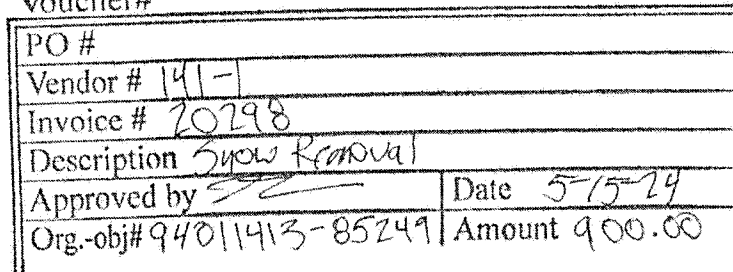 Voucher#
PO #
Vendor # 141-1
Invoice # 20298
Description Snow Removal
Approved by
Date 5-15-24
Org.-obj# 94011413-85249
Amount 900.00